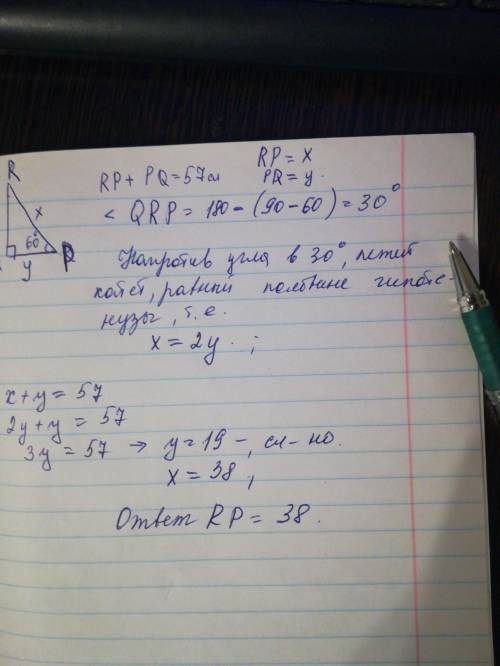 R
x
60°
P
y
RP + PQ = 57см
RP = x
PQ = y.
< QRP = 180 - (90 - 60) = 30°
Напротив угла в 30°, лежит
катет, равный половине гипоте
нузы, т.е.
x = 2y. ;
x + y = 57
2y + y = 57
3y = 57 → y = 19 -, сл-но.
x = 38 ,
Ответ RP = 38.